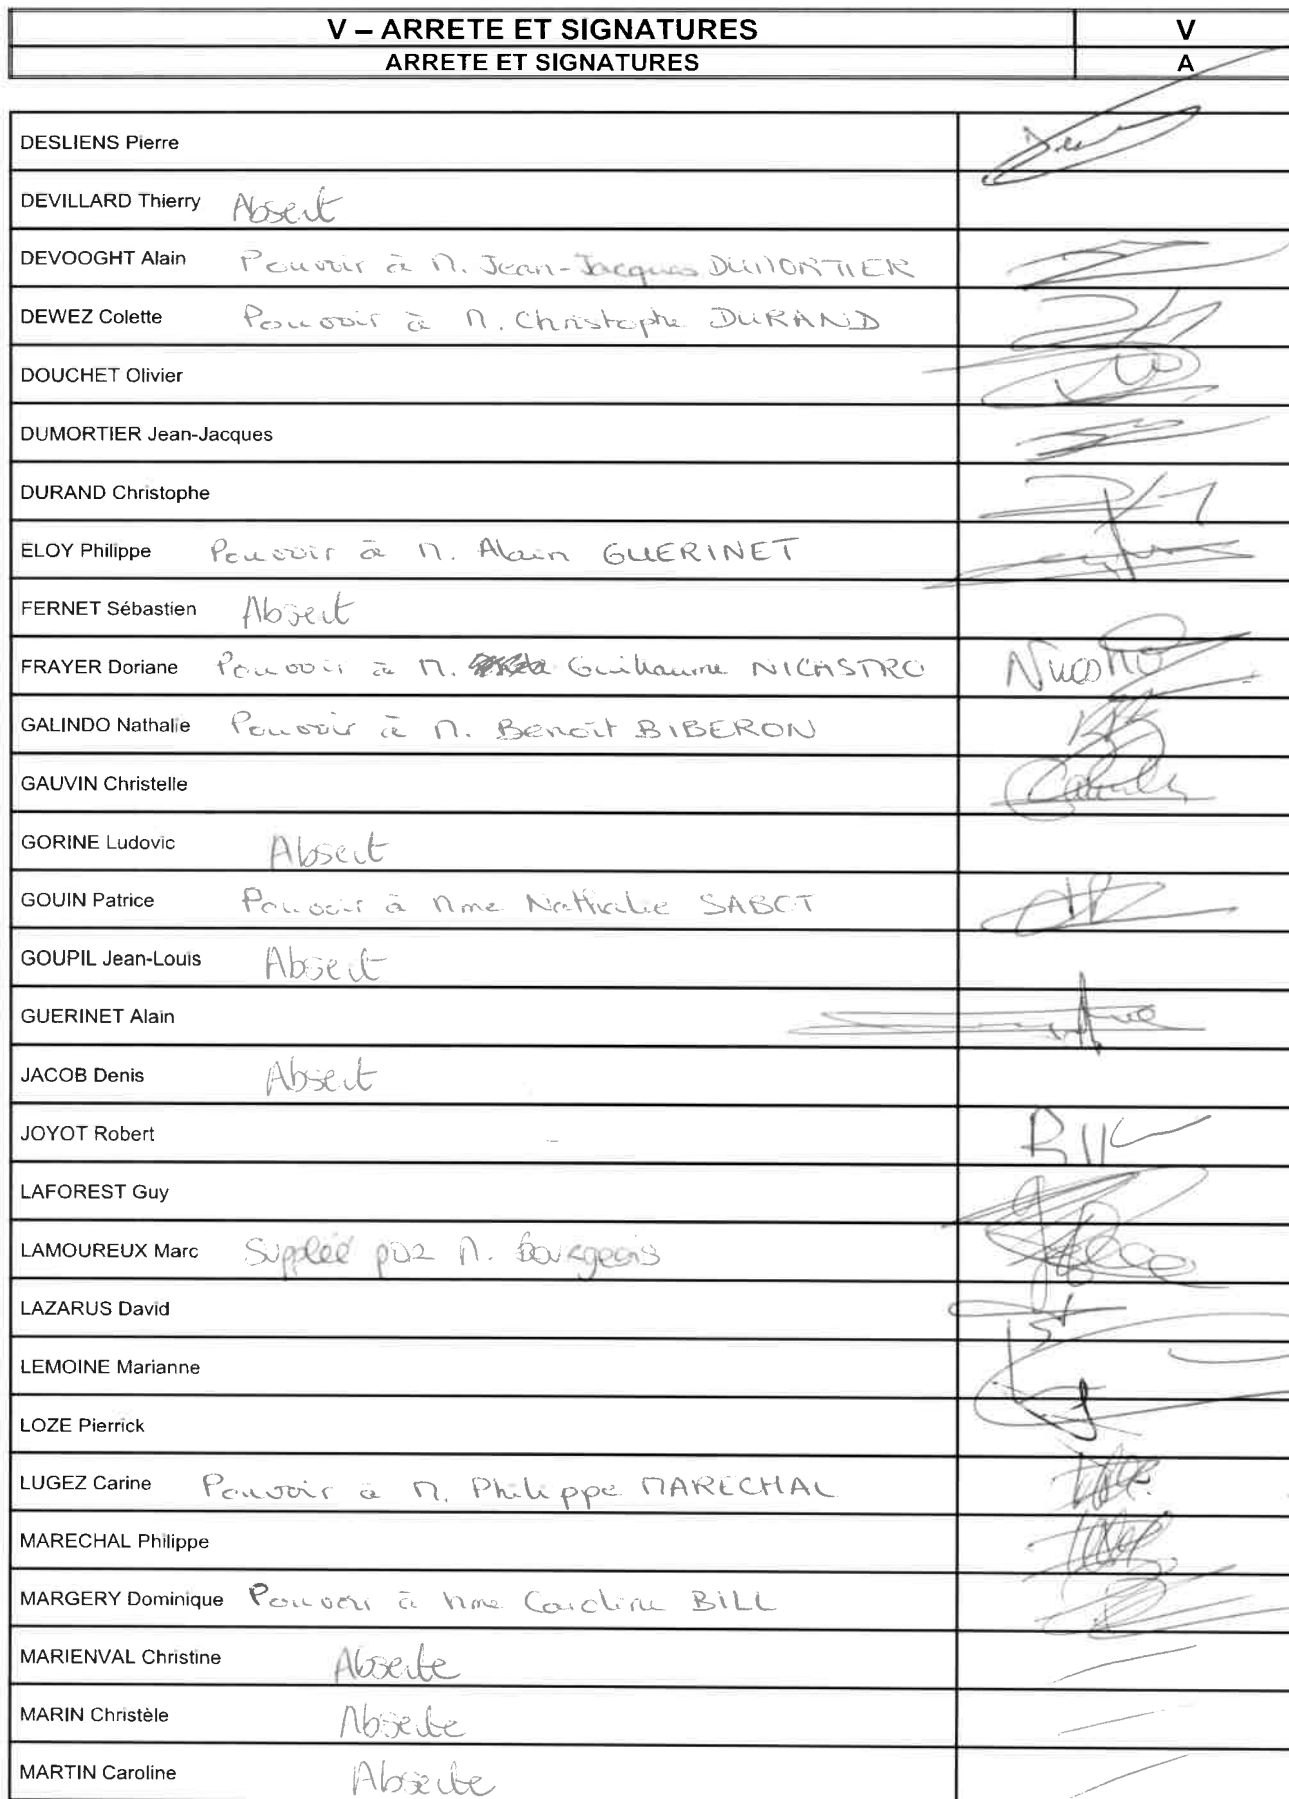 V – ARRETE ET SIGNATURES V
ARRETE ET SIGNATURES A
DESLIENS Pierre
DEVILLARD Thierry Absent
DEVOOGHT Alain Pouvoir à M. Jean-Jacques DUMORTIER
DEWEZ Colette Pouvoir à M. Christophe DURAND
DOUCHET Olivier
DUMORTIER Jean-Jacques
DURAND Christophe
ELOY Philippe Pouvoir à M. Alain GUERINET
FERNET Sébastien Absent
FRAYER Doriane Pouvoir à M. Guillaume NICASTRO
GALINDO Nathalie Pouvoir à M. Benoît BIBERON
GAUVIN Christelle
GORINE Ludovic Absent
GOUIN Patrice Pouvoir à Mme Nathalie SABOT
GOUPIL Jean-Louis Absent
GUERINET Alain
JACOB Denis Absent
JOYOT Robert
LAFOREST Guy
LAMOUREUX Marc Suppléé par M. Bourgeois
LAZARUS David
LEMOINE Marianne
LOZE Pierrick
LUGEZ Carine Pouvoir à M. Philippe MARECHAL
MARECHAL Philippe
MARGERY Dominique Pouvoir à Mme Caroline BILL
MARIENVAL Christine Absente
MARIN Christèle Absente
MARTIN Caroline Absente